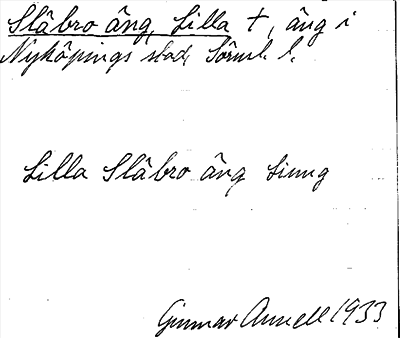 Slåbro äng, Lilla †, äng i
Nyköpings stad, Sörml. l.
Lilla Slåbro äng
Gunnar Annell 1933